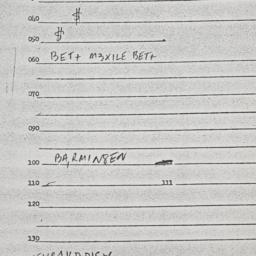 040 $
050 $
060 BET+ M3XILE BET+
070
090
100 BA,RMINSEN
110 111
120
130